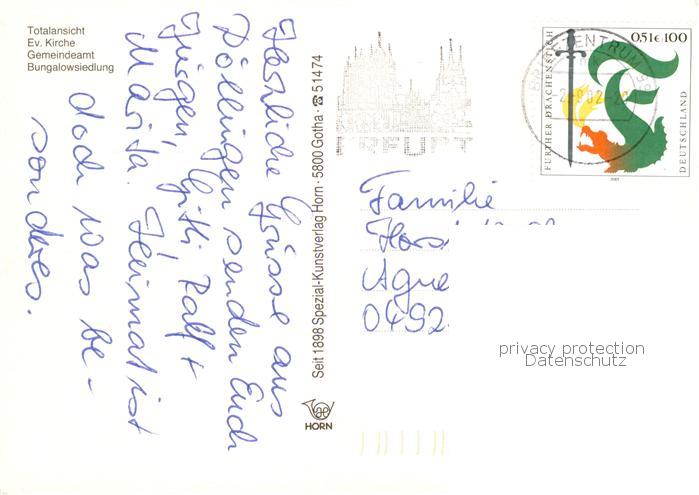 Totalansicht
Ev. Kirche
Gemeindeamt
Bungalowsiedlung
Herzliche Grüsse aus
Döllingen senden Euch
Jürgen, Gitti Ralf +
Marita. Heimat ist
doch was be-
sonderes.
Seit 1898 Spezial-Kunstverlag Horn · 5800 Gotha · ☎ 51474
HORN
ERFURT
BRIEFZENTRUM
FURTHER DRACHENSTICH
0,51€ 100
DEUTSCHLAND
2001
Familie
Hors
Agne
0492
privacy protection
Datenschutz